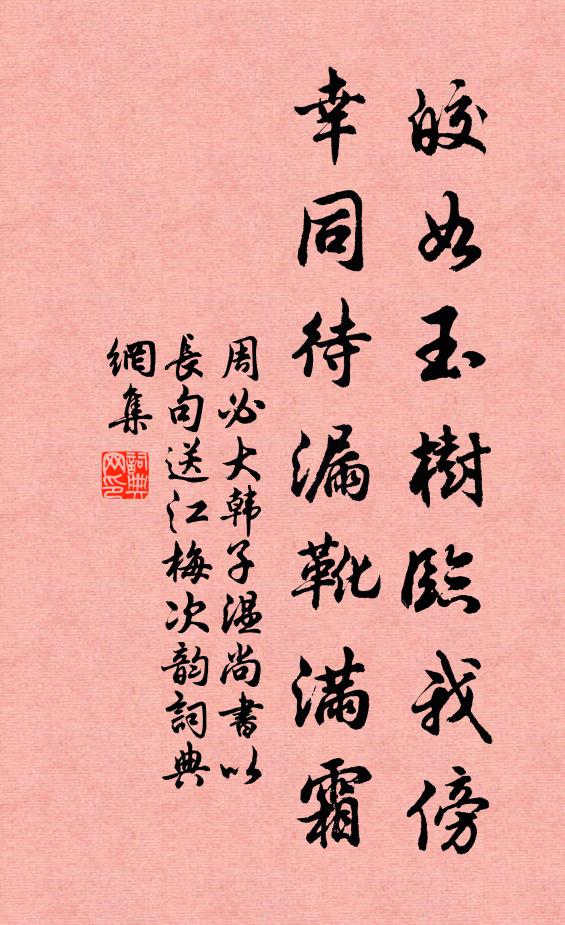 皎如玉樹臨我傍
幸同待漏靴滿霜
周必大韩子温尚書以
長句送江梅次韵詞典
網集
詞典网印